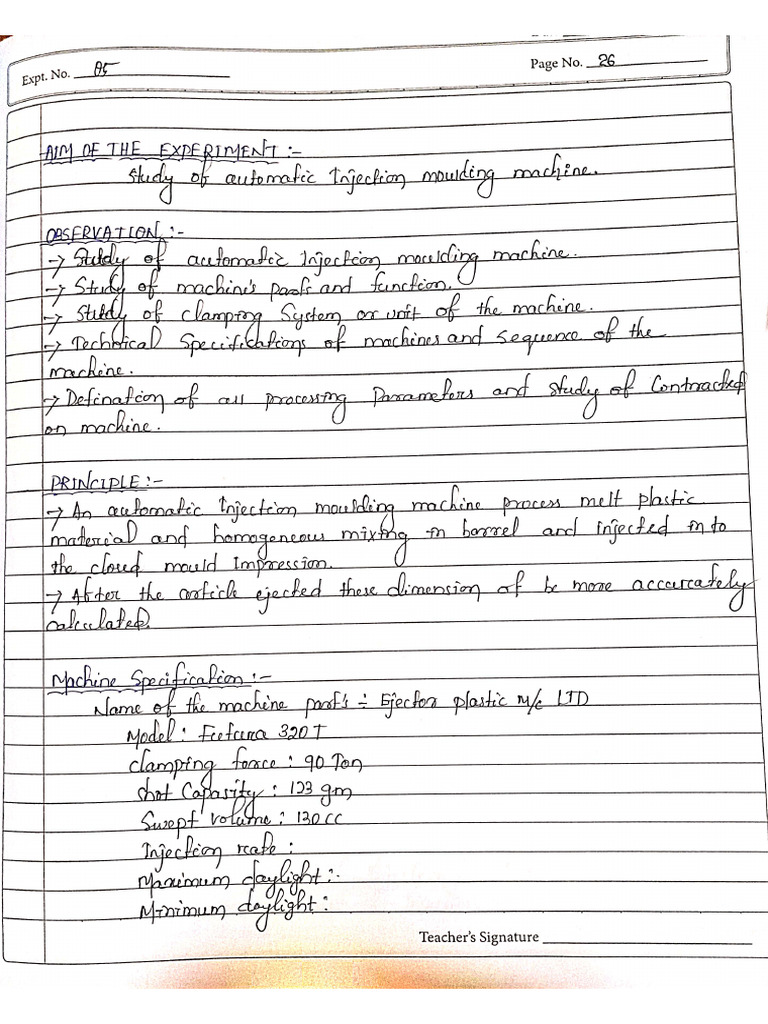 Expt. No. 05
Page No. 26
AIM OF THE EXPERIMENT :-
Study of automatic Injection moulding machine.
OBSERVATION :-
→ Study of automatic Injection moulding machine.
→ Study of machine's parts and function.
→ Study of clamping System or unit of the machine.
→ Technical Specifications of machines and sequence of the
machine.
→ Defination of all processing Parameters and study of Contracted
on machine.
PRINCIPLE :-
→ An automatic Injection moulding machine process melt plastic
material and homogeneous mixing in barrel and injected in to
the closed mould Impression.
→ After the article ejected these dimension of be more accurately
calculated.
Machine Specification :-
Name of the machine part's :- Ejector plastic M/c LTD
Model : 320 T
clamping force : 90 Ton
shot Capasity : 123 gm
Swept volume : 130 CC
Injection rate :
Maximum daylight :-
Minimum daylight :
Teacher's Signature